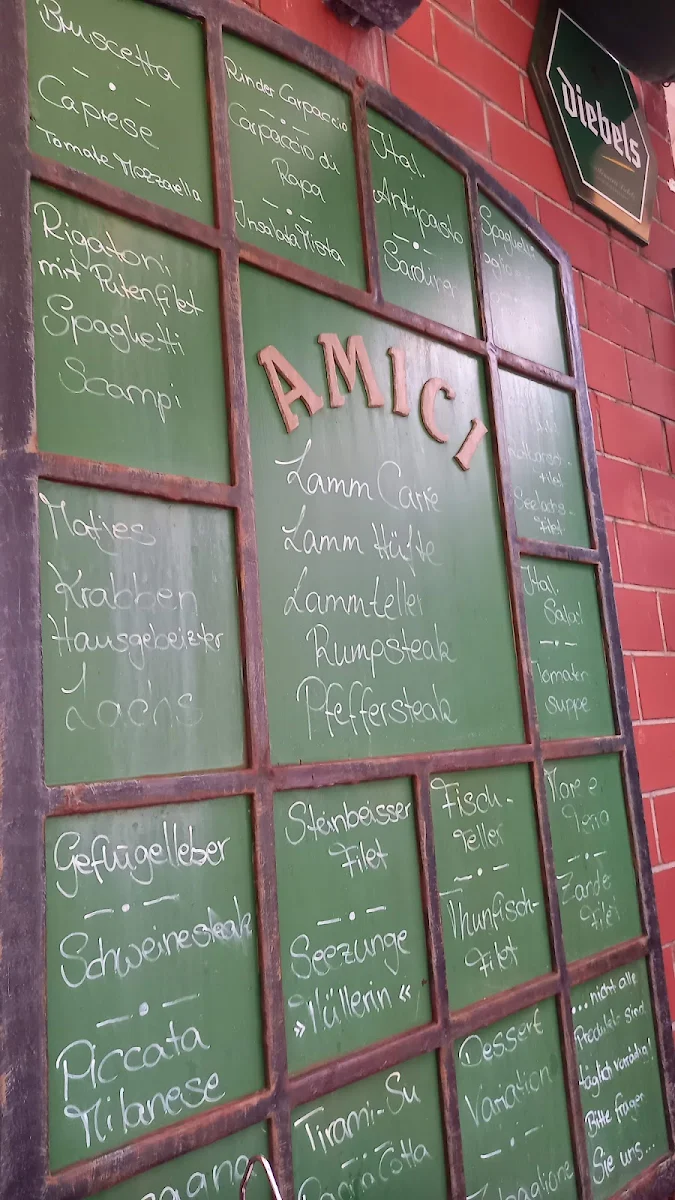 Bruscetta
Caprese
Tomate Mozzarella
Rinder Carpaccio
Carpaccio di
Rapa
Insalata Mista
Ital.
Antipasto
Sardina
Spaghetti
diebels
Rigatoni
mit Putenfilet
Spaghetti
Scampi
AMICI
Lamm Carre
Lamm Hüfte
Lammteller
Rumpsteak
Pfeffersteak
Filet
Seelachs-
Filet
Matjes
Krabben
Hausgebeizter
Lachs
Ital.
Salat
Tomaten
suppe
Geflügelleber
Schweinesteak
Piccata
Milanese
Steinbeisser
Filet
Seezunge
»Müllerin«
Fisch-
teller
Thunfisch-
Filet
Mare e
Zander
Filet
Tirami-Su
Panna Cotta
Dessert
Variation
Zabaglione
... nicht alle
Produkte sind
täglich vorrätig!
Bitte fragen
Sie uns...